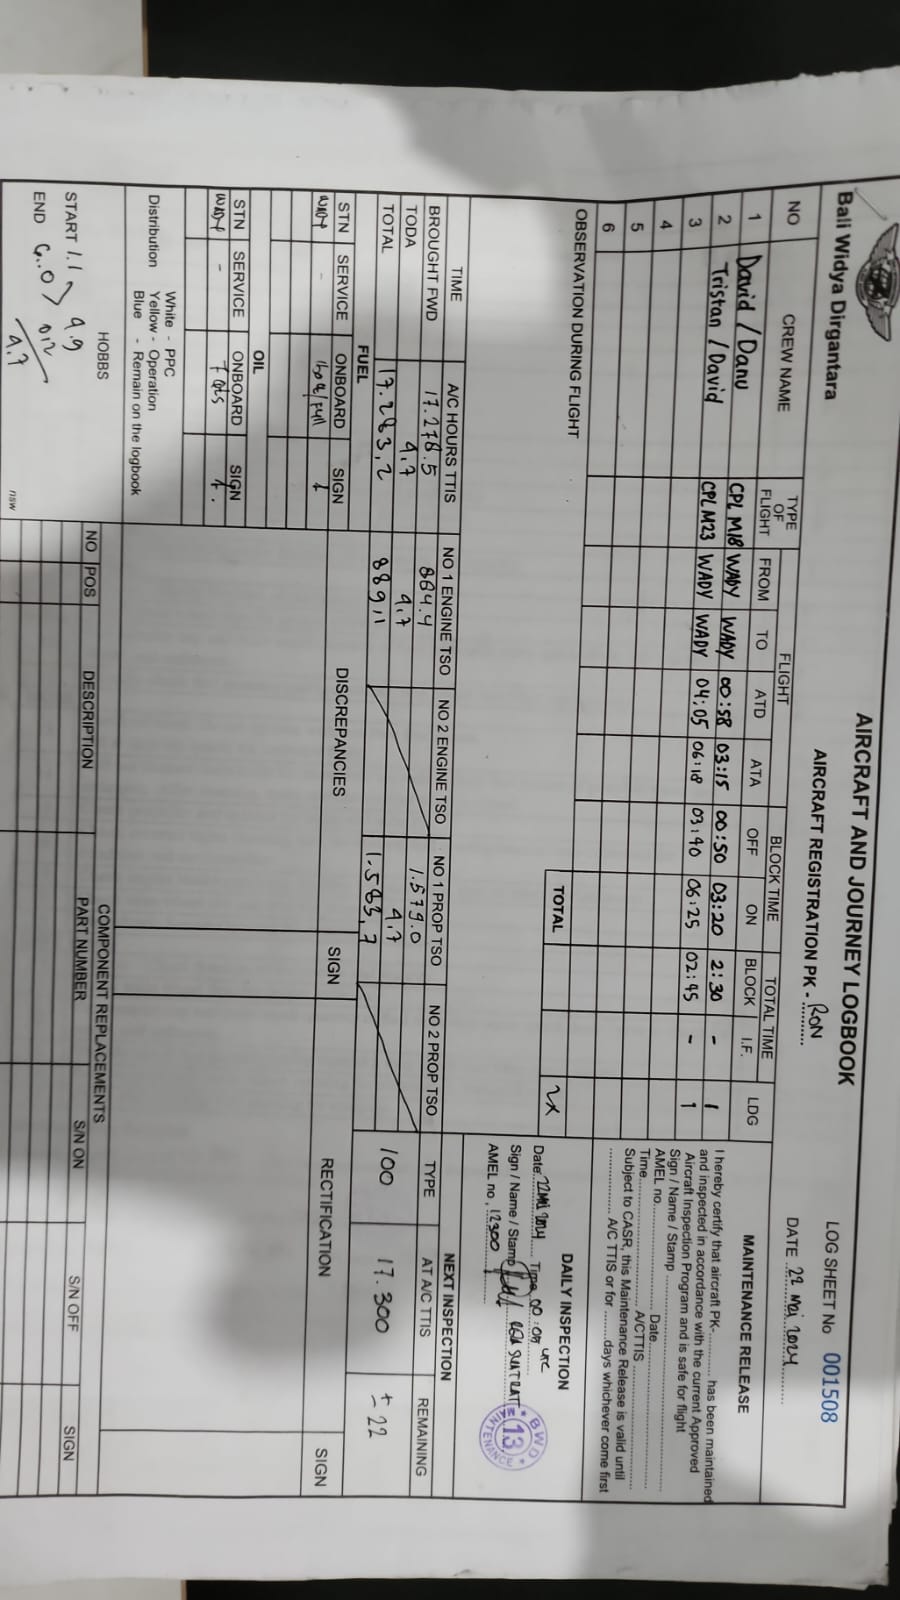 Bali Widya Dirgantara
AIRCRAFT AND JOURNEY LOGBOOK
AIRCRAFT REGISTRATION PK - RON
LOG SHEET No 001508
DATE 22 Mei 2024
NO CREW NAME TYPE OF FLIGHT FLIGHT BLOCK TIME TOTAL TIME LDG
FROM TO ATD ATA OFF ON BLOCK I.F.
1 David / Danu CPL M18 WADY WADY 00:58 03:15 00:50 03:20 2:30 - 1
2 Tristan / David CPL M23 WADY WADY 04:05 06:18 03:40 06:25 02:45 - 1
3
4
5
6
OBSERVATION DURING FLIGHT
TOTAL 2x
MAINTENANCE RELEASE
I hereby certify that aircraft PK-.......... has been maintained
and inspected in accordance with the current Approved
Aircraft Inspection Program and is safe for flight
Sign / Name / Stamp
AMEL no. Date
Time A/CTTIS
Subject to CASR, this Maintenance Release is valid until
A/C TTIS or for ........days whichever come first
DAILY INSPECTION
Date: 22 Mei 2024 Time 00:00 UTC
Sign / Name / Stamp
AMEL no. 12300
BWD
13
MAINTENANCE
TIME A/C HOURS TTIS NO 1 ENGINE TSO NO 2 ENGINE TSO NO 1 PROP TSO NO 2 PROP TSO
BROUGHT FWD 17.278.5 884.4 1.579.0
TODA 4.7 4.7 4.7
TOTAL 17.283,2 889,1 1.583,7
NEXT INSPECTION
TYPE AT A/C TTIS REMAINING
100 17.300 ± 22
FUEL
STN SERVICE ONBOARD SIGN
WADY -
OIL
STN SERVICE ONBOARD SIGN
WADY - 7 qts
Distribution White - PPC
Yellow - Operation
Blue - Remain on the logbook
HOBBS
START 1.1
END 6.0
4.9
0.2
4.7
nsw
DISCREPANCIES SIGN RECTIFICATION SIGN
COMPONENT REPLACEMENTS
NO POS DESCRIPTION PART NUMBER S/N ON S/N OFF SIGN